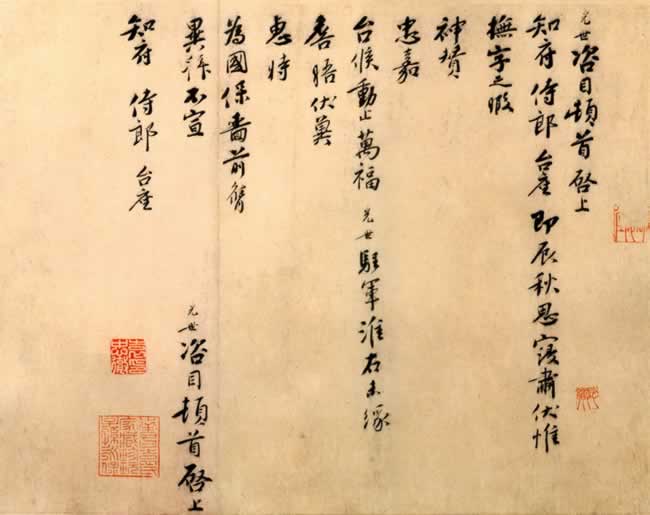 光世咨目頓首啓上
知府侍郎台座即辰秋思寖肅伏惟
撫字之暇
神贊
忠嘉
台候動止萬福光世駐軍淮右未緣
詹晤伏冀
惠時
為國保嗇前膺
異拜不宣光世咨目頓首啓上
知府侍郎台座